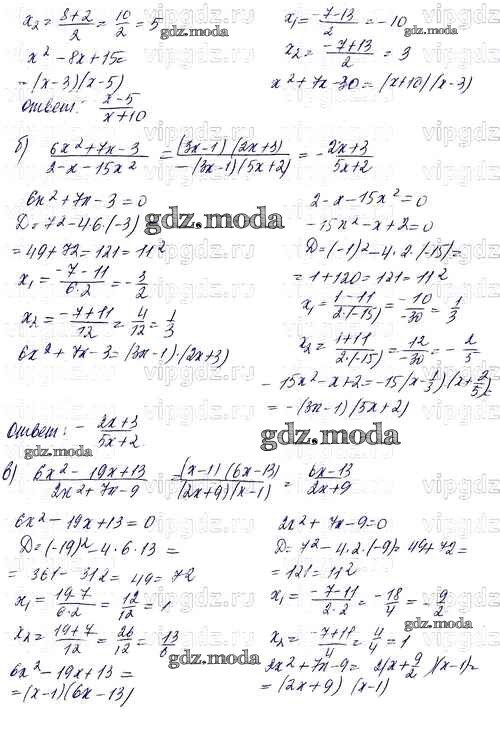 x₂ = (8+2)/2 = 10/2 = 5
x² − 8x + 15 =
= (x−3)(x−5)
Ответ: (x−5)/(x+10)
x₁ = (−7−13)/2 = −10
x₂ = (−7+13)/2 = 3
x² + 7x − 30 = (x+10)(x−3)
gdz.moda
gdz.moda
б) (6x²+7x−3)/(2−x−15x²) = ((3x−1)(2x+3))/(−(3x−1)(5x+2)) = −(2x+3)/(5x+2)
6x² + 7x − 3 = 0
D = 7² − 4·6·(−3)
= 49 + 72 = 121 = 11²
x₁ = (−7−11)/(6·2) = −3/2
x₂ = (−7+11)/12 = 4/12 = 1/3
6x² + 7x − 3 = (3x−1)·(2x+3)
gdz.moda
gdz.moda
2 − x − 15x² = 0
−15x² − x + 2 = 0
D = (−1)² − 4·2·(−15) =
= 1 + 120 = 121 = 11²
x₁ = (1−11)/(2·(−15)) = −10/−30 = 1/3
x₂ = (1+11)/(2·(−15)) = 12/−30 = −2/5
−15x² − x + 2 = −15(x−1/3)(x+2/5) =
= −(3x−1)(5x+2)
gdz.moda
Ответ: −(2x+3)/(5x+2)
gdz.moda
в) (6x²−19x+13)/(2x²+7x−9) = ((x−1)(6x−13))/((2x+9)(x−1)) = (6x−13)/(2x+9)
6x² − 19x + 13 = 0
D = (−19)² − 4·6·13 =
= 361 − 312 = 49 = 7²
x₁ = (19−7)/(6·2) = 12/12 = 1
x₂ = (19+7)/12 = 26/12 = 13/6
6x² − 19x + 13 =
= (x−1)(6x−13)
gdz.moda
2x² + 7x − 9 = 0
D = 7² − 4·2·(−9) = 49 + 72 =
= 121 = 11²
x₁ = (−7−11)/(2·2) = −18/4 = −9/2
x₂ = (−7+11)/4 = 4/4 = 1
2x² + 7x − 9 = 2(x+9/2)(x−1) =
= (2x+9)(x−1)
gdz.moda
vipgdz.ru